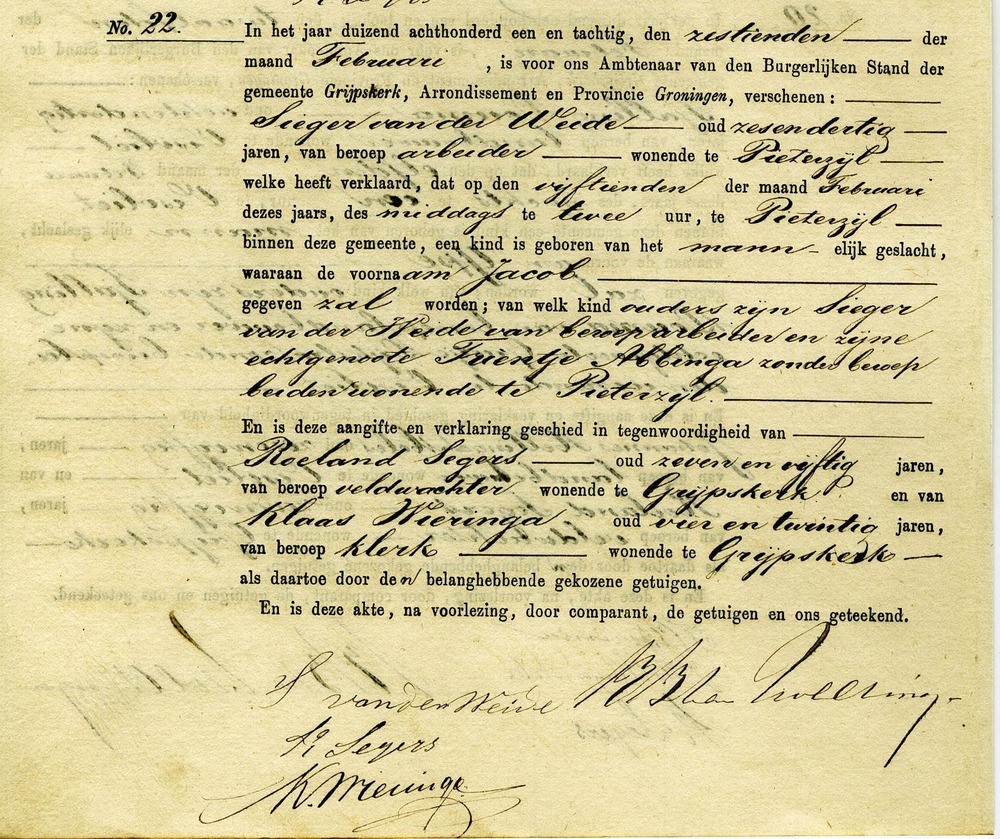 No. 22.
In het jaar duizend achthonderd een en tachtig, den zestienden der
maand Februari , is voor ons Ambtenaar van den Burgerlijken Stand der
gemeente Grijpskerk, Arrondissement en Provincie Groningen, verschenen:
Sieger van der Weide oud zesendertig
jaren, van beroep arbeider wonende te Pieterzijl
welke heeft verklaard, dat op den vijftienden der maand Februari
dezes jaars, des middags te twee uur, te Pieterzijl
binnen deze gemeente, een kind is geboren van het mann- elijk geslacht,
waaraan de voornaam Jacob
gegeven zal worden; van welk kind ouders zijn Sieger
van der Weide van beroep arbeider en zijne
echtgenoote Trientje Abbinga zonder beroep
beiden wonende te Pieterzijl.
En is deze aangifte en verklaring geschied in tegenwoordigheid van
Roeland Segers oud zeven en vijftig jaren,
van beroep veldwachter wonende te Grijpskerk en van
Klaas Wieringa oud vier en twintig jaren,
van beroep klerk wonende te Grijpskerk
als daartoe door den belanghebbende gekozene getuigen.
En is deze akte, na voorlezing, door comparant, de getuigen en ons geteekend.
S van der Weide
R Segers
K. Wieringa